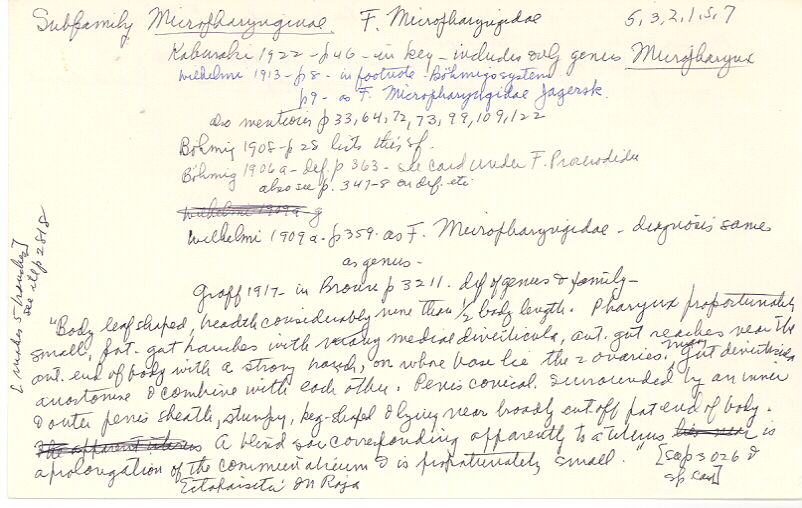 Subfamily Micropharynginae F. Micropharyngidae 5,3,2,1,5,7
Kaburaki 1922 - p46 - in key - includes only genus Micropharynx
Wilhelmi 1913 - p8 - in footnote - Böhmigs system
p9 - as F. Micropharyngidae Jägersk.
also mentions p 33, 64, 72, 73, 99, 109, 122
Böhmig 1908 - p 28 lists this sf.
Böhmig 1906a - def. p 363 - see card under F. Procerodidae
also see p. 347-8 on def. etc
Wilhelmi 1909a - p
Wilhelmi 1909a - p359 - as F. Micropharyngidae - diagnosis same
as genus -
Graff 1917 - in Bronn p 3211. def of genus & family -
"Body leaf shaped, breadth considerably more than 1/2 body length. Pharynx proportionately
small, pst. gut branches with many medial diverticula, ant. gut reaches near the
ant. end of body with a strong branch, on whose base lie the 2 ovaries. Many gut diverticula
anastomose & combine with each other. Penis conical. surrounded by an inner
& outer penis sheath, stumpy, peg-shaped & lying near broadly cut off pst end of body.
The apparent uterus A blind sac corresponding apparently to a uterus lies near is
a prolongation of the common atrium & is proportionately small." [see p 3026 &
sp card]
Ectoparasitic on Raja
[makes 5 branches]
see it p 2818